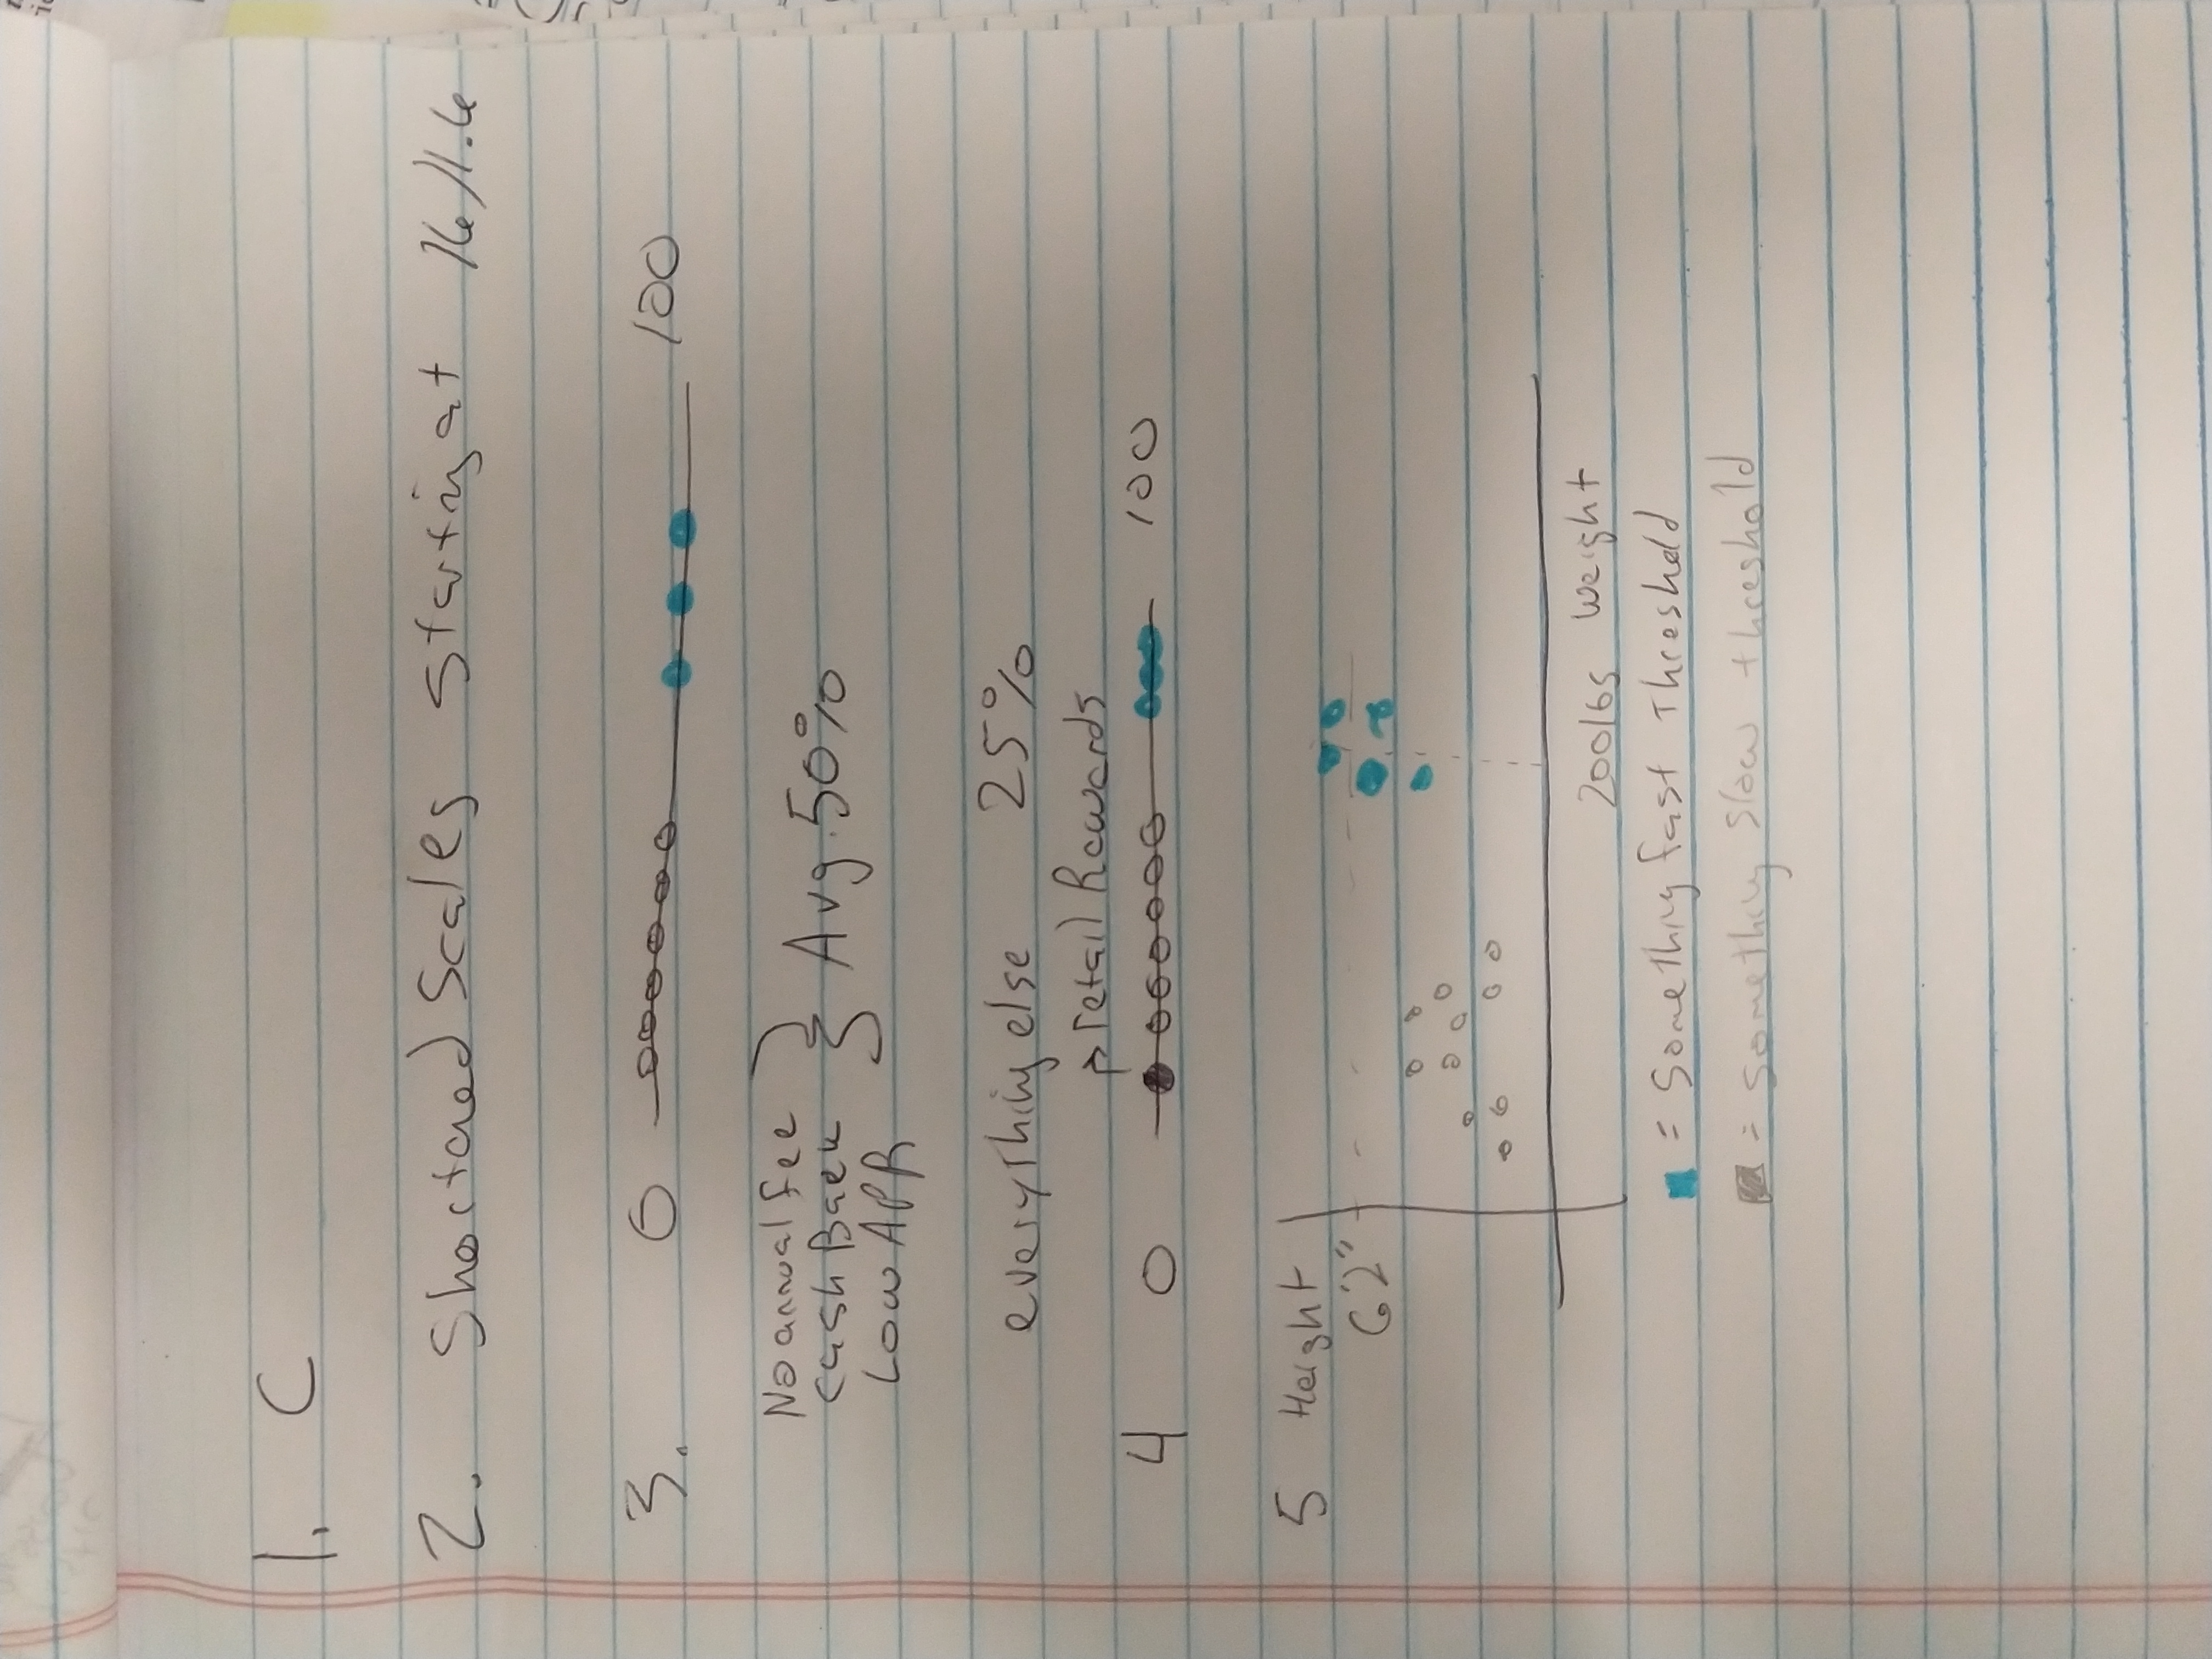 1. C
2. Shortened Scales starting at 16/1.6
3. 0 100
No annual fee
cash Back
Low APR
} Avg. 50%
everything else 25%
→ retail Rewards
4 0 100
5 Height
6'2"
200lbs Weight
= Something fast Threshold
= Something slow threshold